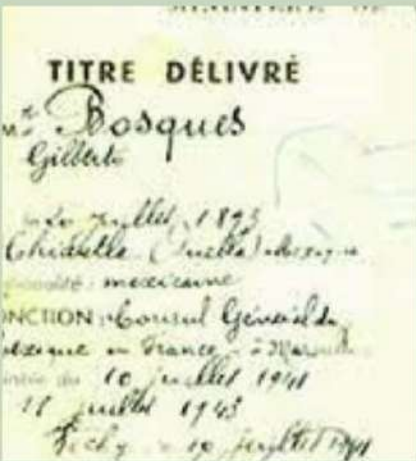 TITRE DÉLIVRÉ
Bosques
Gilberto
juillet 1892
Chiautla (Puebla) Mexique
mexicaine
NCTION: Consul Général du
Mexique en France à
10 juillet 1941
juillet 1943
Vichy 10 juillet 1941